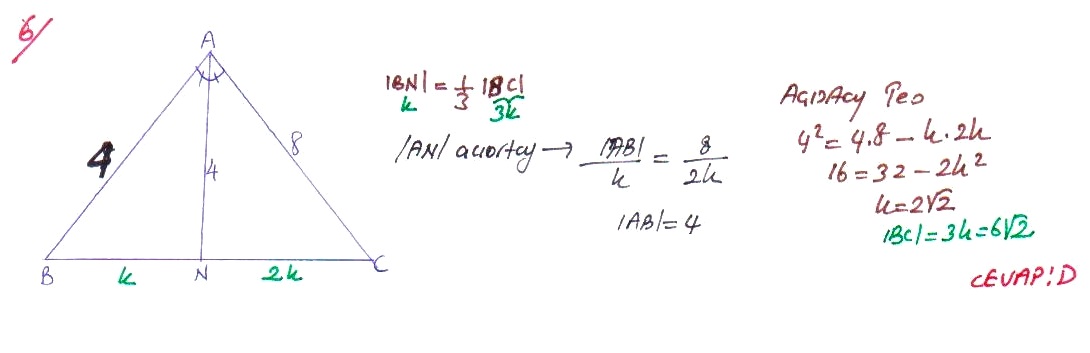 6/
A
4
4
8
B
k
N
2k
C
|BN| = 1/3 |BC|
k 3k
|AN| açıortay → |AB|/k = 8/2k
|AB| = 4
Açıortay Teo
4² = 4.8 - k.2k
16 = 32 - 2k²
k = 2√2
|BC| = 3k = 6√2
CEVAP: D